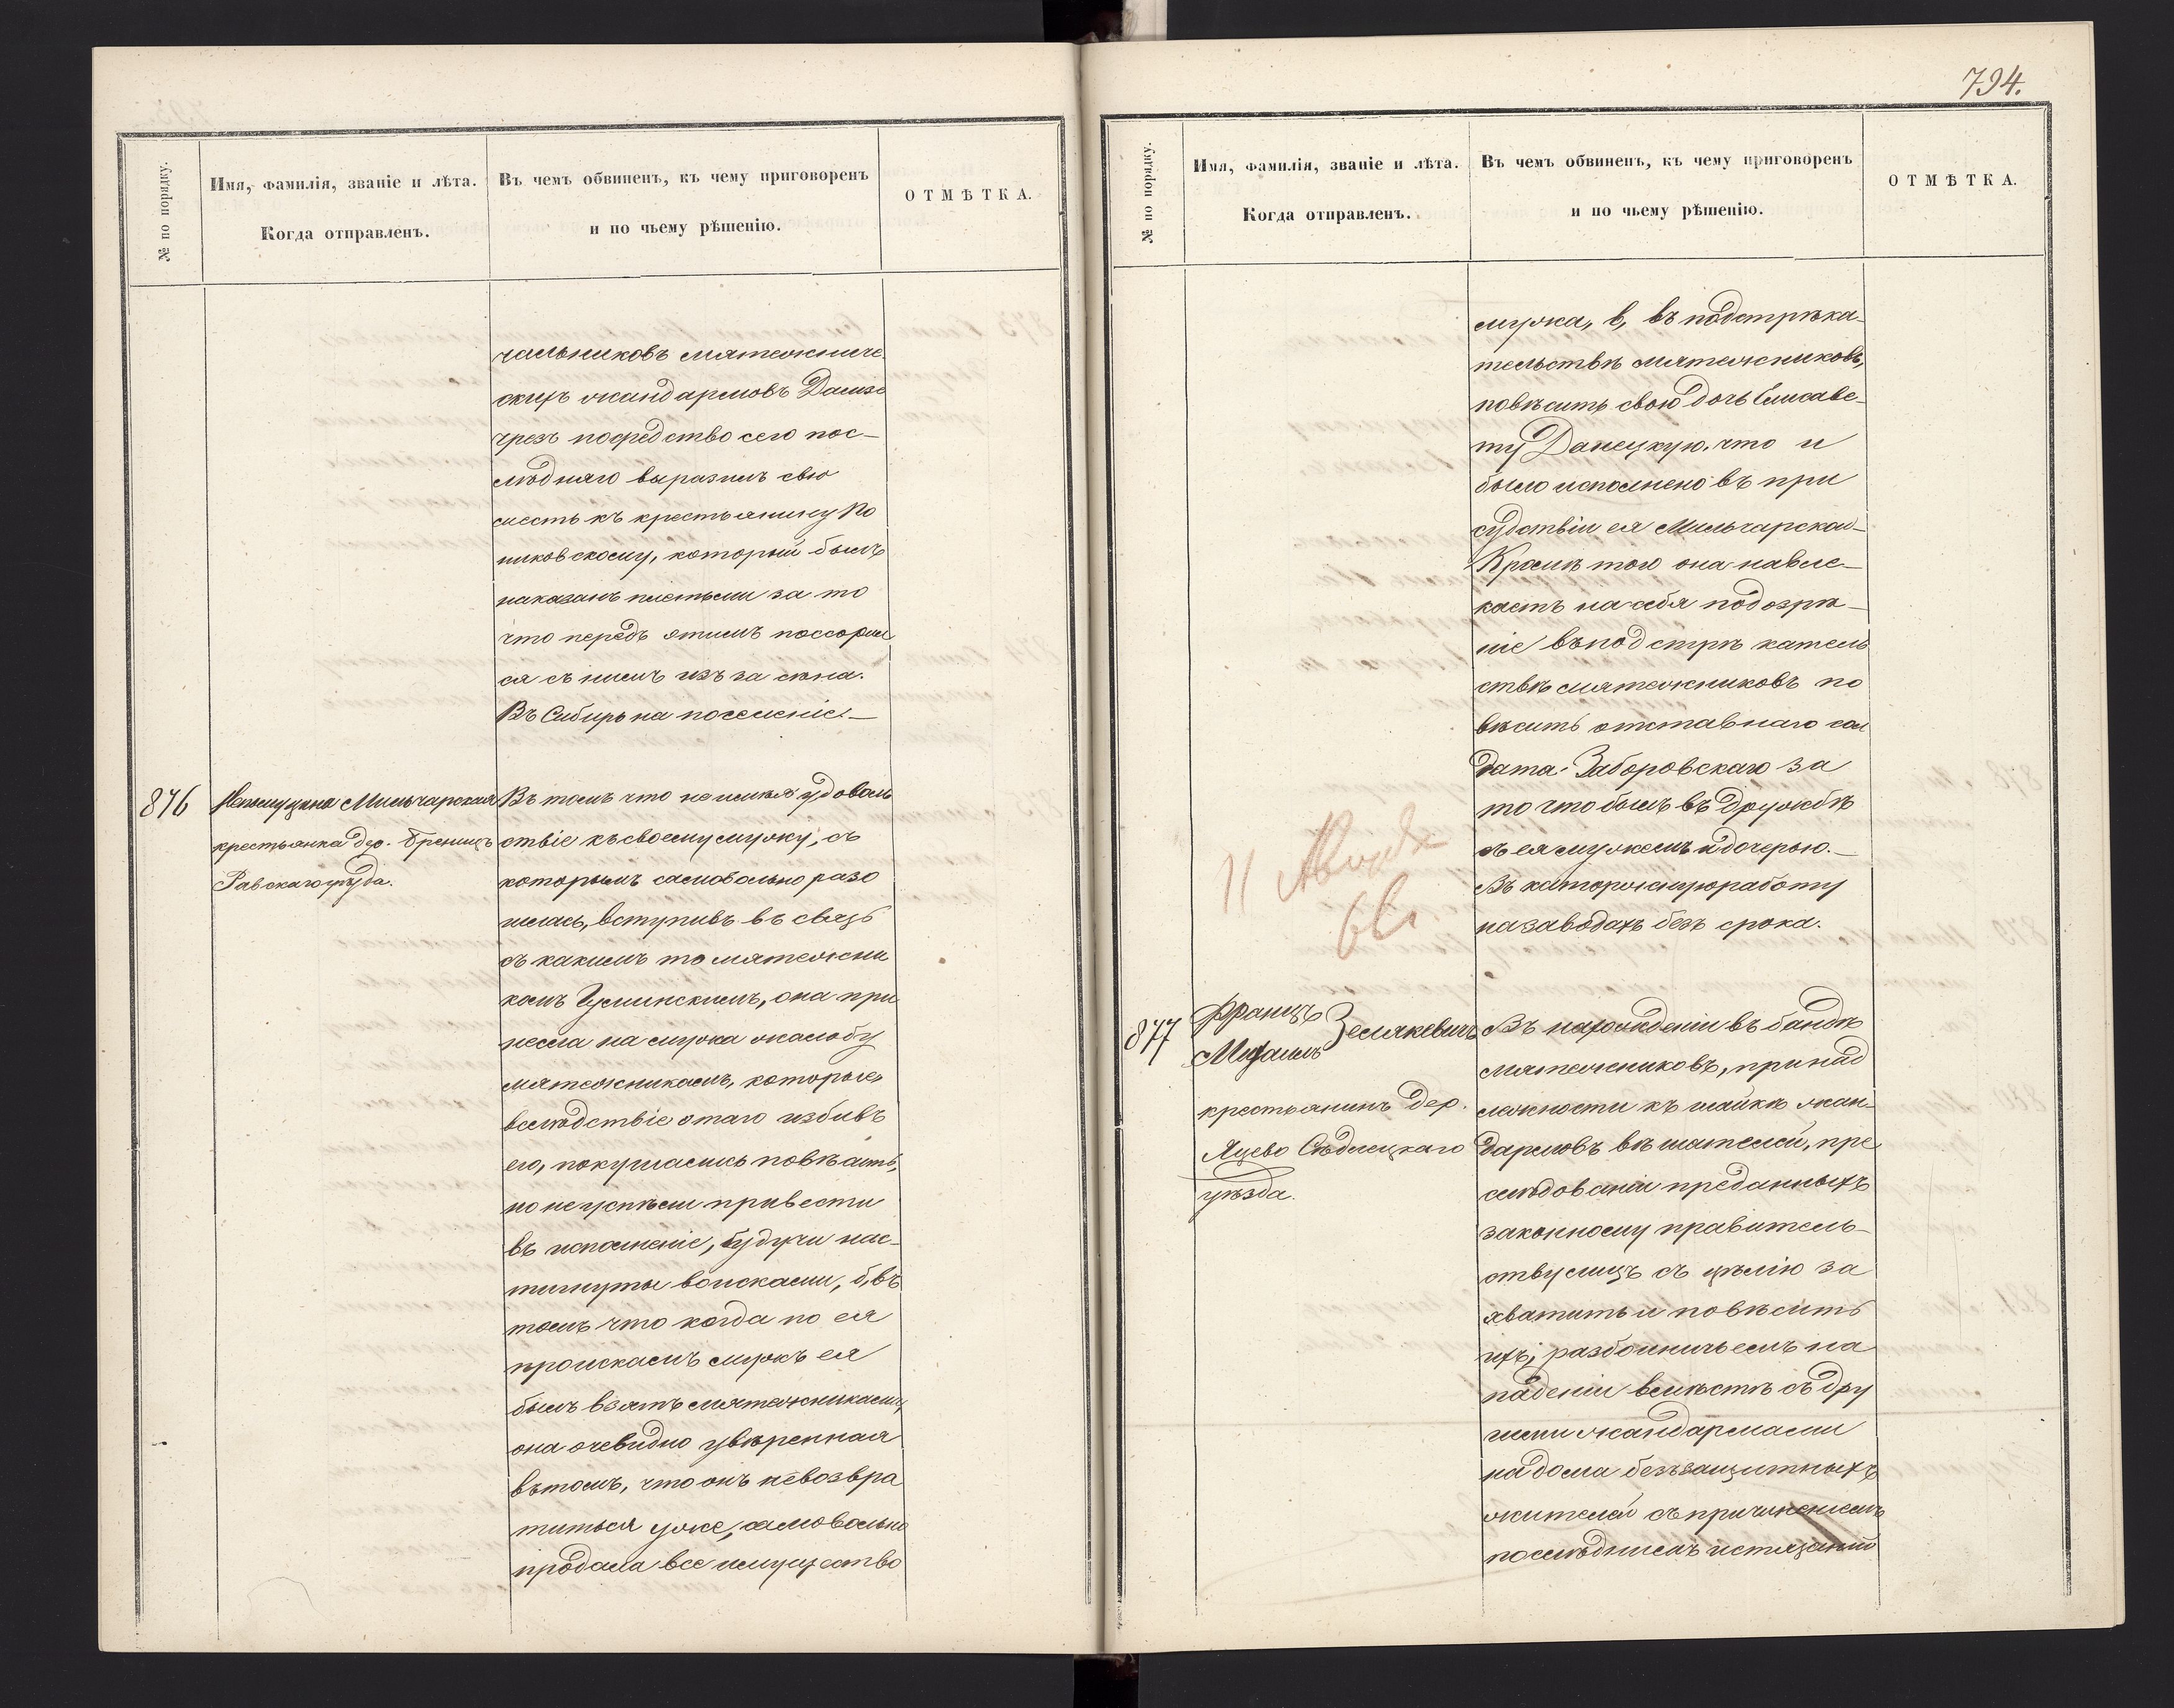 № по порядку.
Имя, фамилія, званіе и лѣта.
Когда отправленъ.
Въ чемъ обвиненъ, къ чему приговоренъ
и по чьему рѣшенію.
ОТМѢТКА.
чальниковъ мятежниче
скихъ жандармовъ
чрезъ посредство сего пос-
лѣдняго выразилъ свою
месть къ крестьянину По
никовскому, который былъ
наказанъ плетьми за то
что передъ этимъ поссорил
ся съ нимъ изъ за сѣна.
Въ Сибирь на поселеніе.—
876
Непомуцена Мильчарская
крестьянка дер.
Равскаго уѣзда.
Въ томъ что не имѣя удоволь
ствіе къ своему мужу, съ
которымъ самовольно разо
шлась, вступивъ въ связь
съ какимъ то мятежни
комъ Гусминскимъ, она при
несла на мужа жалобу
мятежникамъ, которые,
вслѣдствіе этаго избивъ
его, покушались повѣсить,
но не успѣли привести
въ исполненіе, будучи нас-
тигнуты войсками, б, въ
томъ что когда по ея
проискамъ мужъ ея
былъ взятъ мятежниками,
она очевидно увѣренная
въ томъ, что онъ невозвра
титься уже, самовольно
продала все имущество
794.
№ по порядку.
Имя, фамилія, званіе и лѣта.
Когда отправленъ.
Въ чемъ обвиненъ, къ чему приговоренъ
и по чьему рѣшенію.
ОТМѢТКА.
мужа, в, въ подстрѣка-
тельствѣ мятежниковъ,
повѣсить свою дочь Елисаве-
ту Данецкую, что и
было исполнено въ при
судствіи ея Мильчарской—
Кромѣ того она навле-
каетъ на себя подозрѣ-
ніе въ подстрѣкатель
ствѣ мятежниковъ по
вѣсить отставнаго сол
дата Заборовскаго за
то что былъ въ дружбѣ
съ ея мужемъ и дочерью.—
Въ каторжную работу
на заводахъ безъ срока.
11
877
Францъ
Михаилъ
Земякевичъ
крестьянинъ дер.
Яцево Сѣдлецкаго
уѣзда.
Въ нахожденіи въ бандѣ
мятежниковъ, принад
лежности къ шайкѣ жан-
дармовъ вѣшателей, пре
слѣдованіи преданныхъ
законному правитель-
ству лицъ съ цѣлію за
хватить и повѣсить
ихъ, разбойничьемъ на
паденіи вмѣстѣ съ дру
гими жандармами
на дома беззащитныхъ
жителей съ причиненіемъ
послѣднимъ истязаній